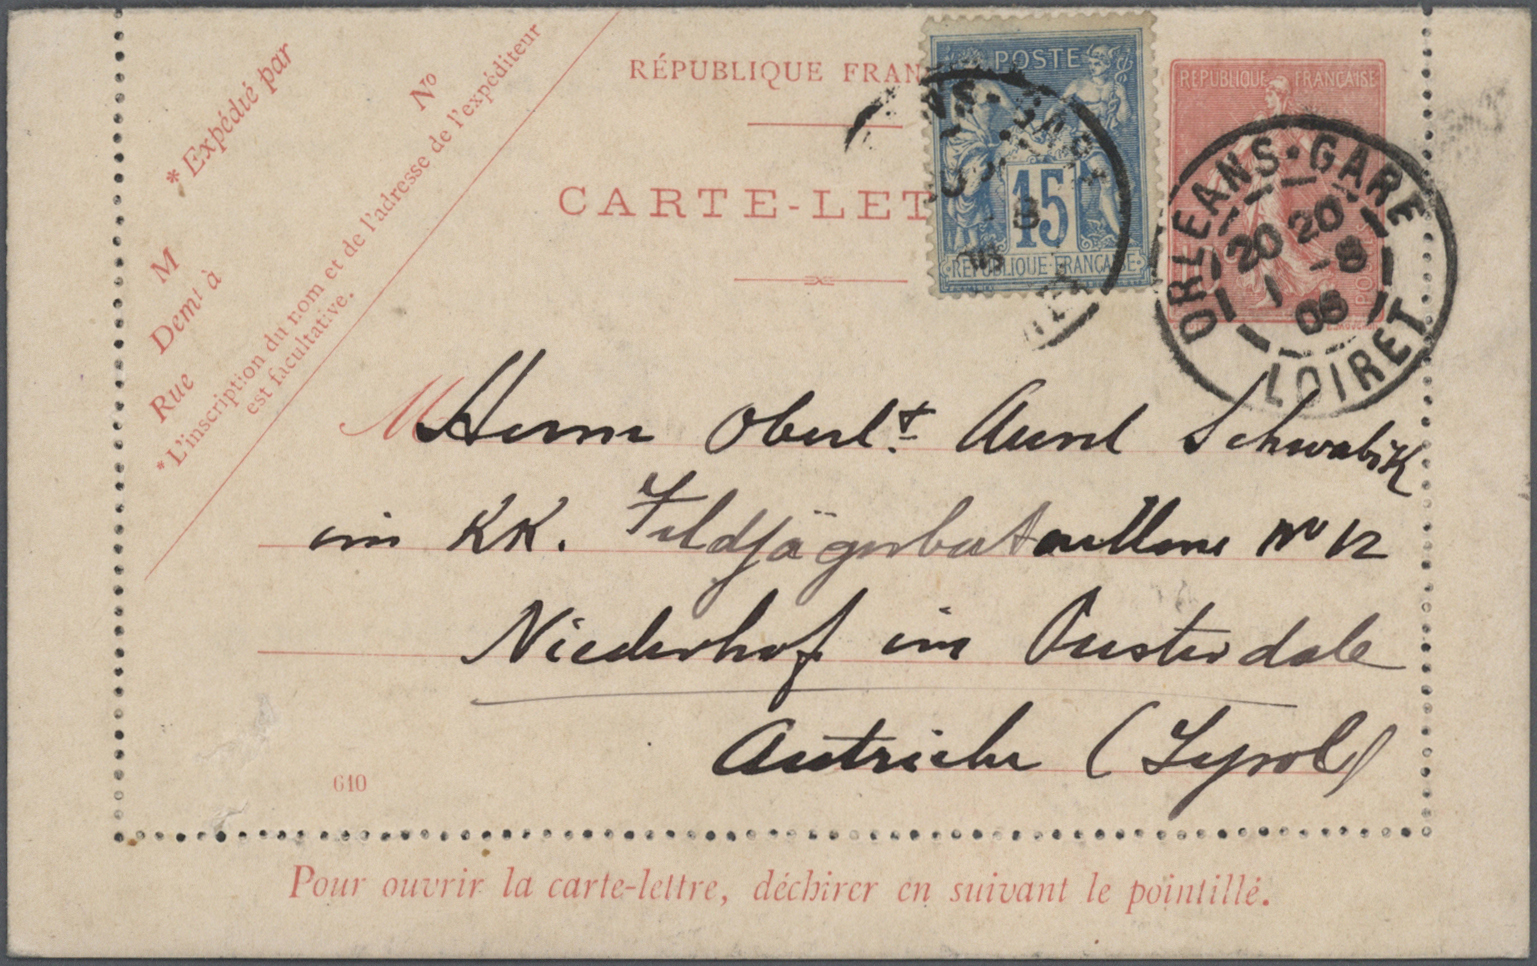 * Expédié par
N°
M
Dem^t à
Rue
* L'inscription du nom et de l'adresse de l'expéditeur
est facultative.
RÉPUBLIQUE FRAN
CARTE-LET
POSTE
15
REPUBLIQUE FRANÇAISE
REPUBLIQUE FRANÇAISE
ORLEANS-GARE
20 20
1 -8
05
LOIRET
M Herrn Oberlt Aurel Schwabik
im KK. Feldjägerbataillone No 12
Niederhof im
Autriche (Tyrol)
610
Pour ouvrir la carte-lettre, déchirer en suivant le pointillé.